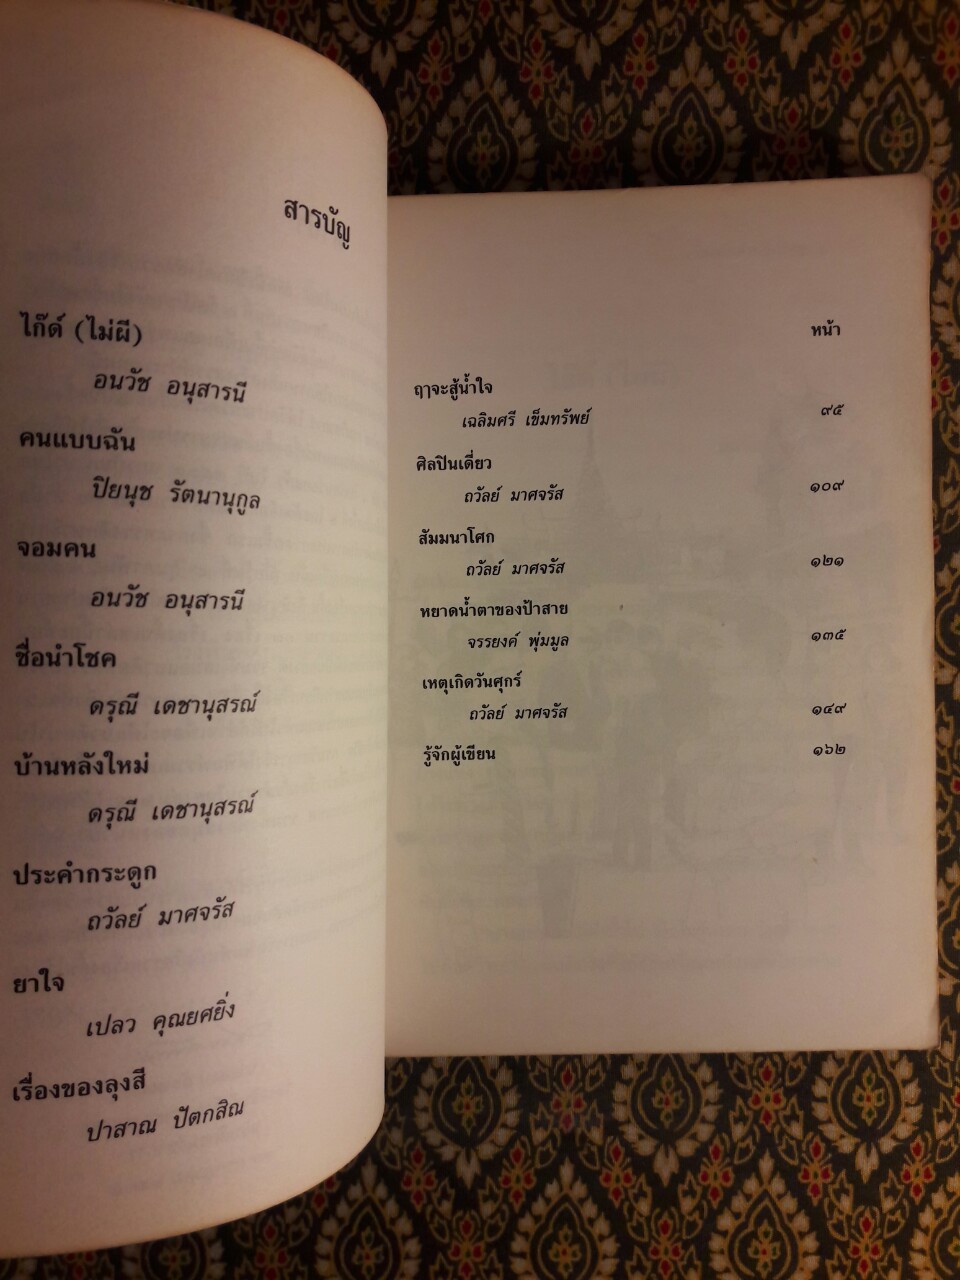 สารบัญ
ไก๊ด์ (ไม่ผี)
อนวัช อนุสารนี
คนแบบฉัน
ปิยนุช รัตนานุกูล
จอมคน
อนวัช อนุสารนี
ชื่อนำโชค
ดรุณี เดชานุสรณ์
บ้านหลังใหม่
ดรุณี เดชานุสรณ์
ประคำกระดูก
ถวัลย์ มาศจรัส
ยาใจ
เปลว คุณยศยิ่ง
เรื่องของลุงสี
ปาสาณ ปัตกสิณ
หน้า
ฤๅจะสู้น้ำใจ
เฉลิมศรี เข็มทรัพย์ ๙๕
ศิลปินเดี่ยว
ถวัลย์ มาศจรัส ๑๐๙
สัมมนาโศก
ถวัลย์ มาศจรัส ๑๒๑
หยาดน้ำตาของป้าสาย
จรรยงค์ พุ่มมูล ๑๓๕
เหตุเกิดวันศุกร์
ถวัลย์ มาศจรัส ๑๔๙
รู้จักผู้เขียน ๑๖๒